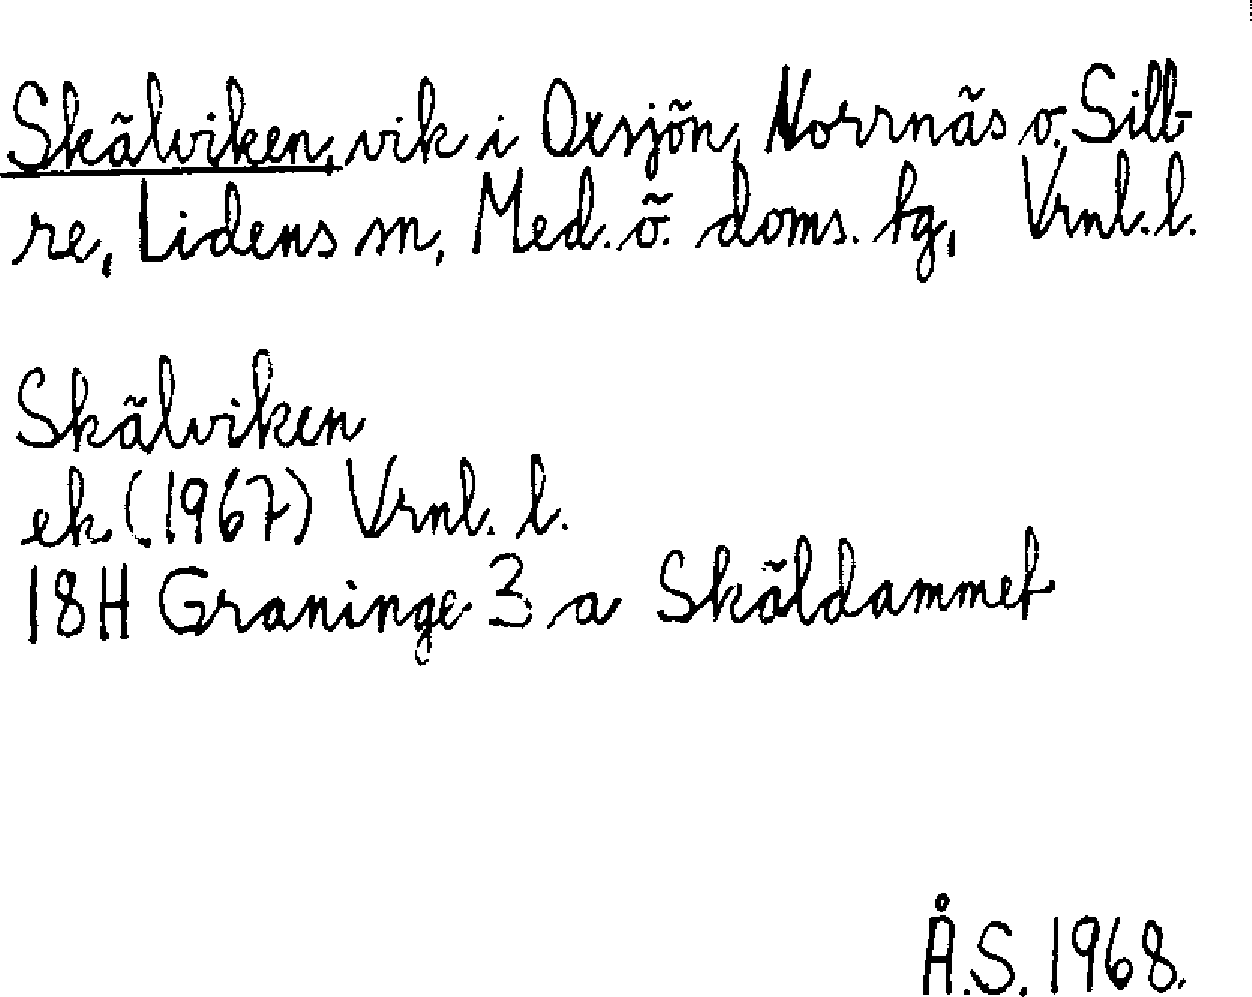 Skälviken, vik i Oxsjön, Norrnäs o. Sill-
re, Lidens sn, Med. ö. doms. tg, Vrnl. l.
Skälviken
ek. (1967) Vrnl. l.
18H Graninge 3 a Skäldammet
Å.S. 1968.